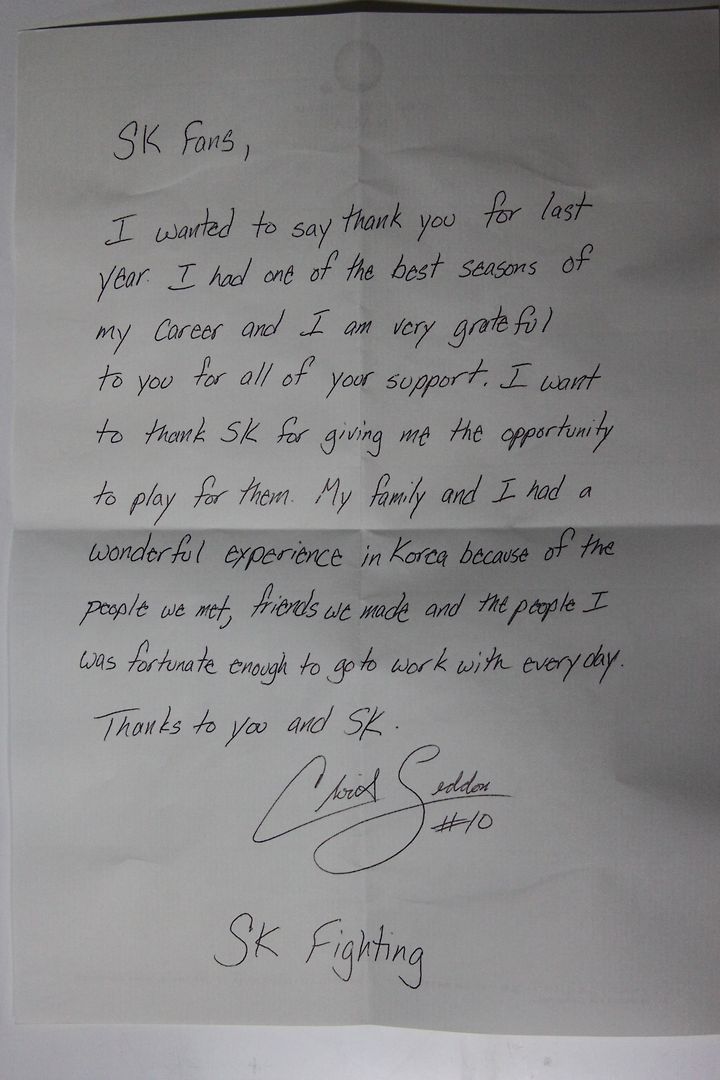 SK Fans,
I wanted to say thank you for last
year. I had one of the best seasons of
my career and I am very grateful
to you for all of your support. I want
to thank SK for giving me the opportunity
to play for them. My family and I had a
wonderful experience in Korea because of the
people we met, friends we made and the people I
was fortunate enough to go to work with every day.
Thanks to you and SK.
Chris Seddon
#10
SK Fighting